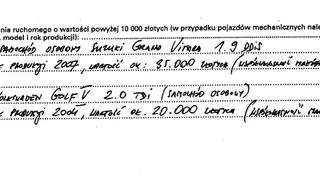 nia ruchomego o wartości powyżej 10 000 złotych (w przypadku pojazdów mechanicznych nale
, model i rok produkcji):
SAMOCHÓD OSOBOWY SUZUKI GRAND VITARA 1.9 DDiS
PRODUKCJI 2007, WARTOŚĆ OK: 35.000 (
VOLKSWAGEN GOLF V 2.0 TDI (SAMOCHÓD OSOBOWY)
PRODUKCJI 2004, WARTOŚĆ OK. 20.000 (